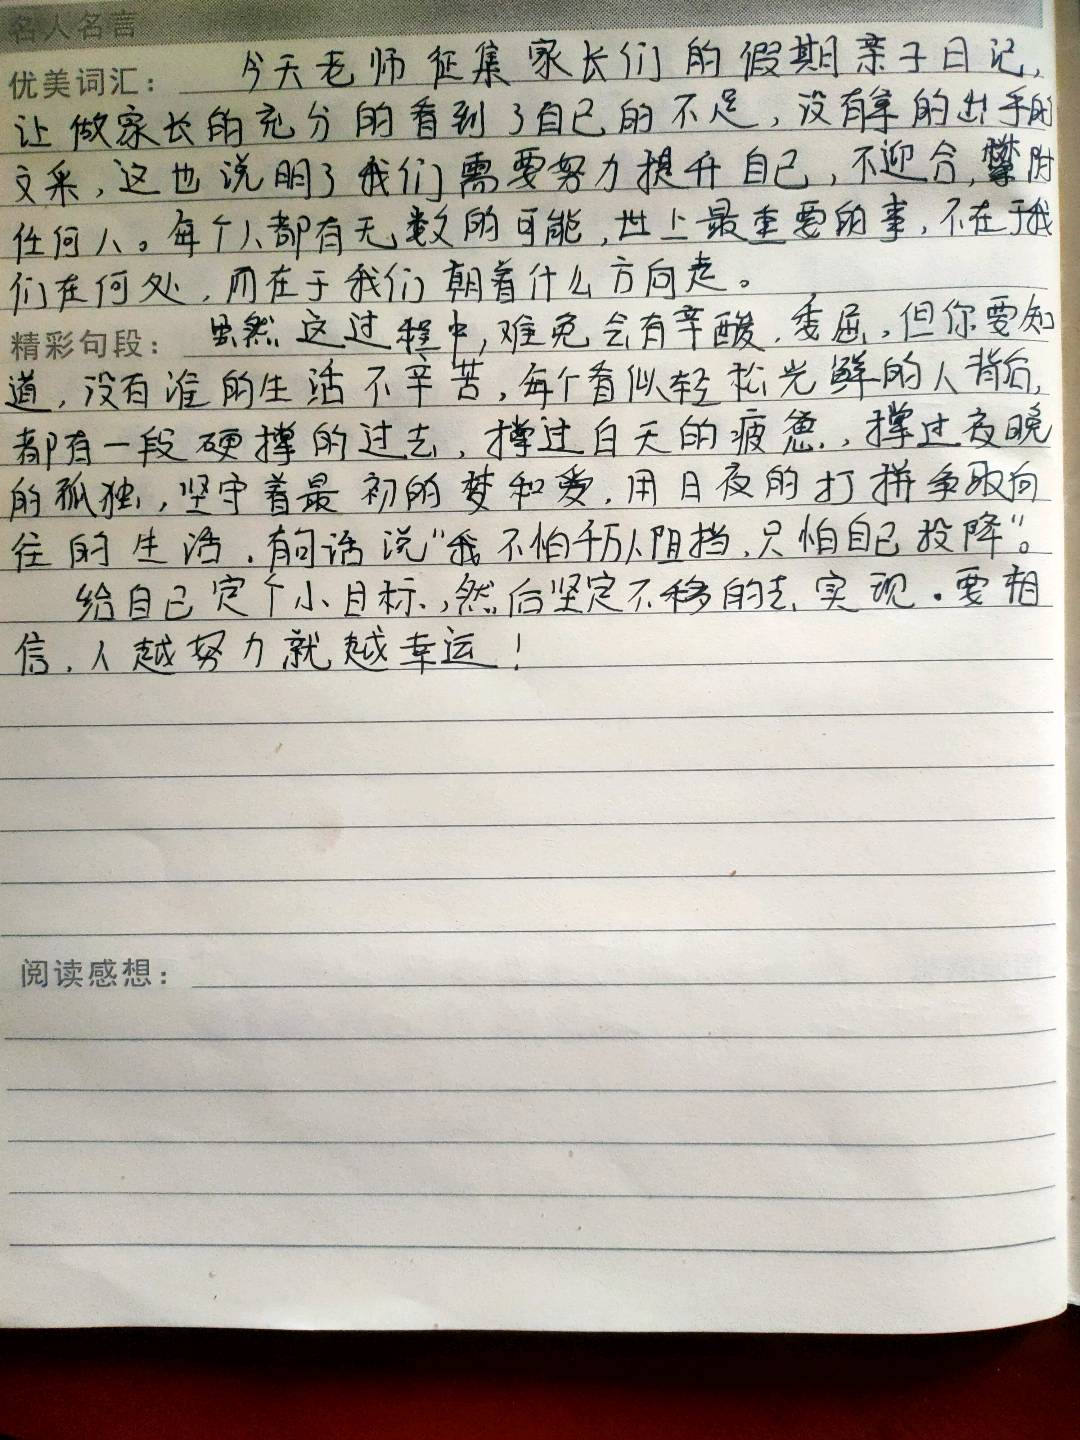 名人名言
优美词汇： 今天老师征集家长们的假期亲子日记，
让做家长的充分的看到了自己的不足，没有拿的出手的
文采，这也说明了我们需要努力提升自己，不迎合，攀附
任何人。每个人都有无数的可能，世上最重要的事，不在于我
们在何处，而在于我们朝着什么方向走。
精彩句段： 虽然这过程中，难免会有辛酸，委屈，但你要知
道，没有谁的生活不辛苦，每个看似轻松光鲜的人背后，
都有一段硬撑的过去，撑过白天的疲惫，撑过夜晚
的孤独，坚守着最初的梦和爱，用日夜的打拼争取向
往的生活，有句话说“我不怕千万人阻挡，只怕自己投降”。
给自己定个小目标，然后坚定不移的去实现。要相
信，人越努力就越幸运！
阅读感想：